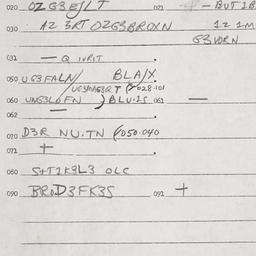 020 OZG3E/LT 021 — BUT 1B
030 AZ 3RT OZG3BROXN 1Z 1M
G3VDRN
031 — Q WRIT
050 UG3FALN/ BLA/X
028.101
060 UNG3LOFN )BLU.IS 061 —
062
070 D3R NU.TN (050.040
071 +
080 S+T1K3L3 OLC
090 BROD3FK3S 091 +